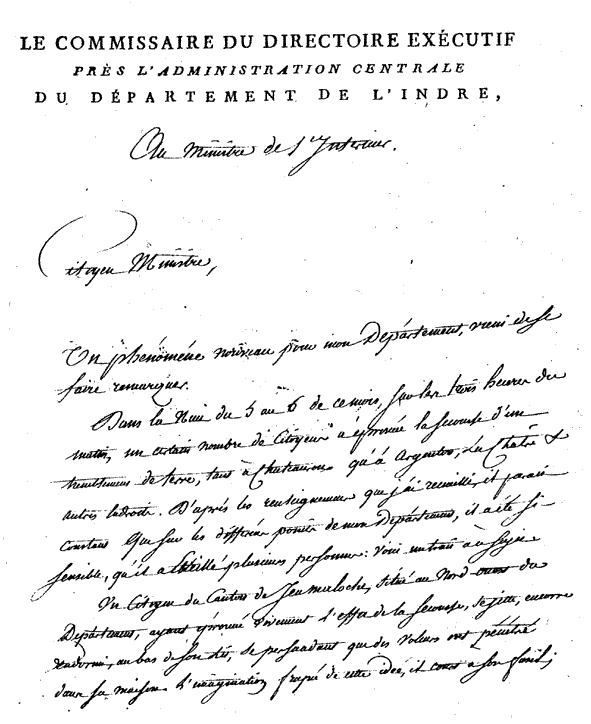 LE COMMISSAIRE DU DIRECTOIRE EXÉCUTIF
PRÈS L'ADMINISTRATION CENTRALE
DU DÉPARTEMENT DE L'INDRE,
Au Ministre de l'Interieur.
Citoyen Ministre,
Un phénoméne nouveau pour mon Département, vient de se
faire remarquer.
Dans la Nuit du 5 au 6 de ce mois, sur les trois heures du
matin, un certain nombre de Citoyens a éprouvé la secousse d'un
tremblement de terre, tant à Chateauroux qu'à Argenton, La Châtre &
autres endroits. D'après les renseignemens que j'ai recueillis, il parait
constant que sur les différens points de mon Département, il a été si
sensible, qu'il a éveillé plusieurs personnes: voici un trait à ce sujet
Un Citoyen du Canton de Jeumaloche, situé au Nord ouest du
Département, ayant éprouvé vivement l'effet de la secousse, se jette, encore
endormi, au bas de son lit, se persuadant que des voleurs ont pénétré
dans sa maison. L'imagination frapée de cette idée, il court a son fusil,